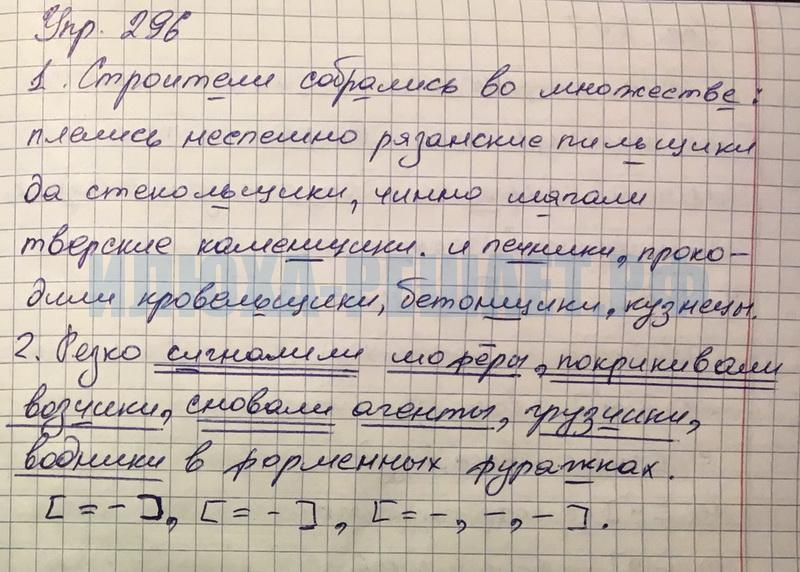 Упр. 296
1. Строители собрались во множестве:
плелись неспешно рязанские пильщики
да стекольщики, чинно шагали
тверские каменщики. и печники, прохо-
дили кровельщики, бетонщики, кузнецы.
ИЛЮХА-РЕШАЕТ.РФ
2. Резко сигналили шофёры, покрикивали
возчики, сновали агенты, грузчики,
водники в форменных фуражках.
[= -], [= -], [= -, -, -].